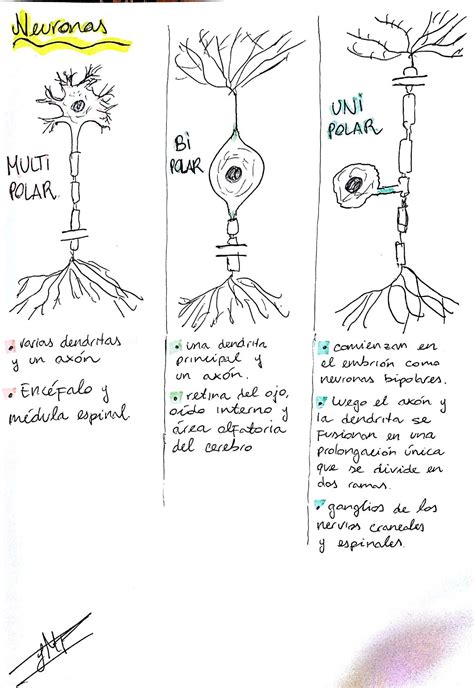 Neuronas
MULTI
POLAR
• varias dendritas
y un axón
• Encéfalo y
médula espinal
BI
POLAR
• una dendrita
principal y
un axón.
• retina del ojo,
oído interno y
área olfatoria
del cerebro
UNI
POLAR
• comienzan en
el embrión como
neuronas bipolares.
• luego el axón y
la dendrita se
fusionan en una
prolongación única
que se divide en
dos ramas.
• ganglios de los
nervios craneales
y espinales.